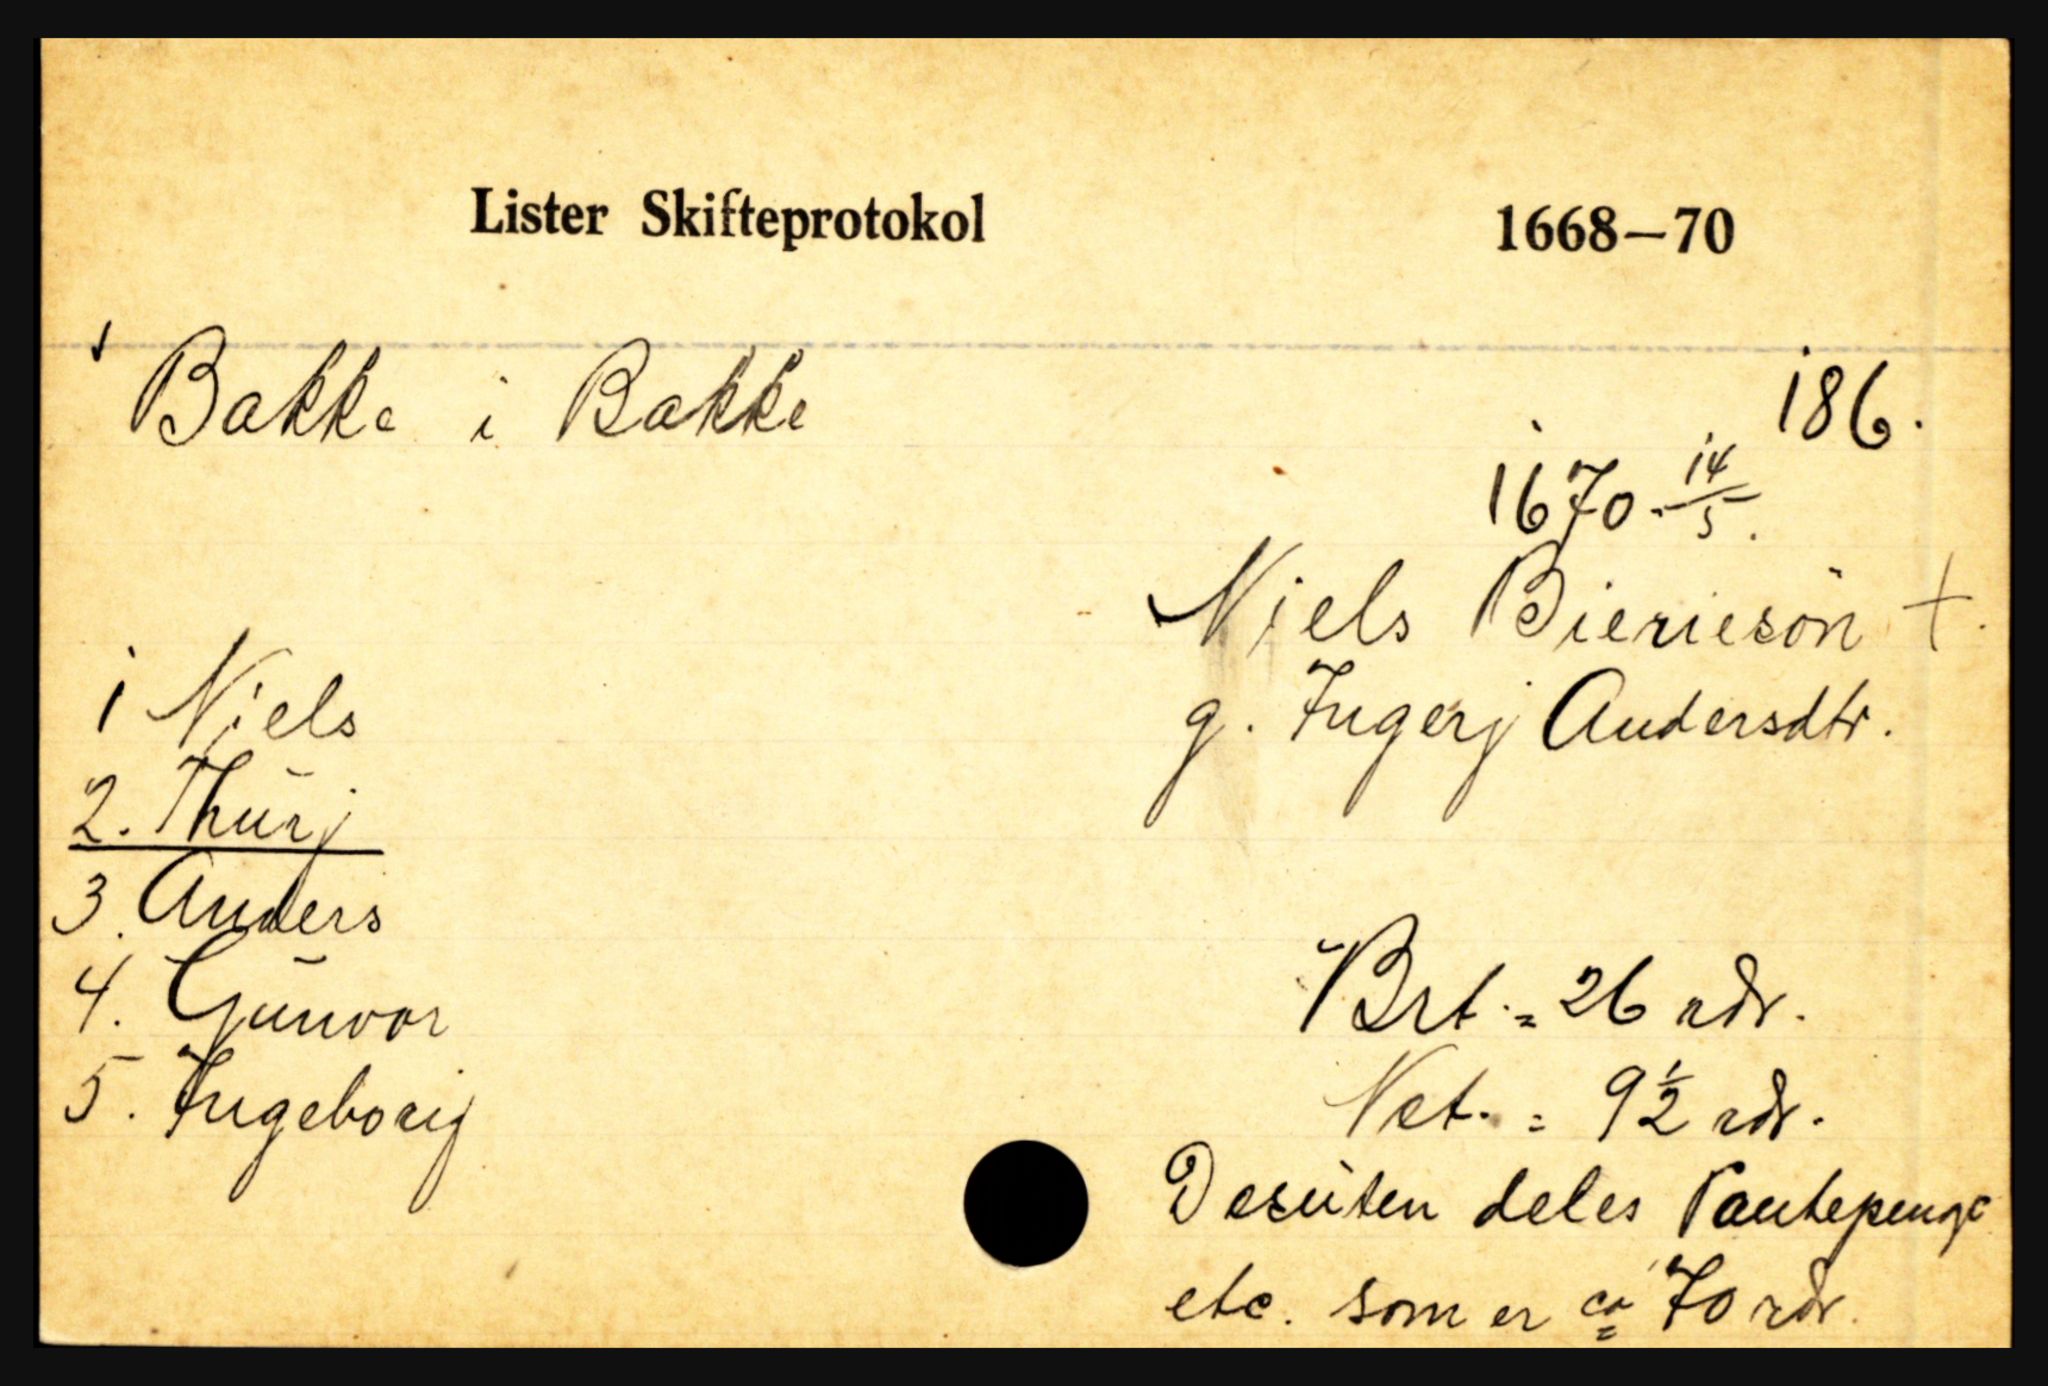 Lister Skifteprotokol 1668—70
Bakke i Bakke 186.
1670 - 14/5.
Niels Bieriesön +.
g. Ingerj Andersdtr.
1 Niels
2. Thurj
3. Anders
4. Gunvor
5. Ingeborig
Brt. = 26 rdr.
Net. = 9 1/2 rdr.
Desuten deles Pantepenge
etc. som er ca 70 rdr.